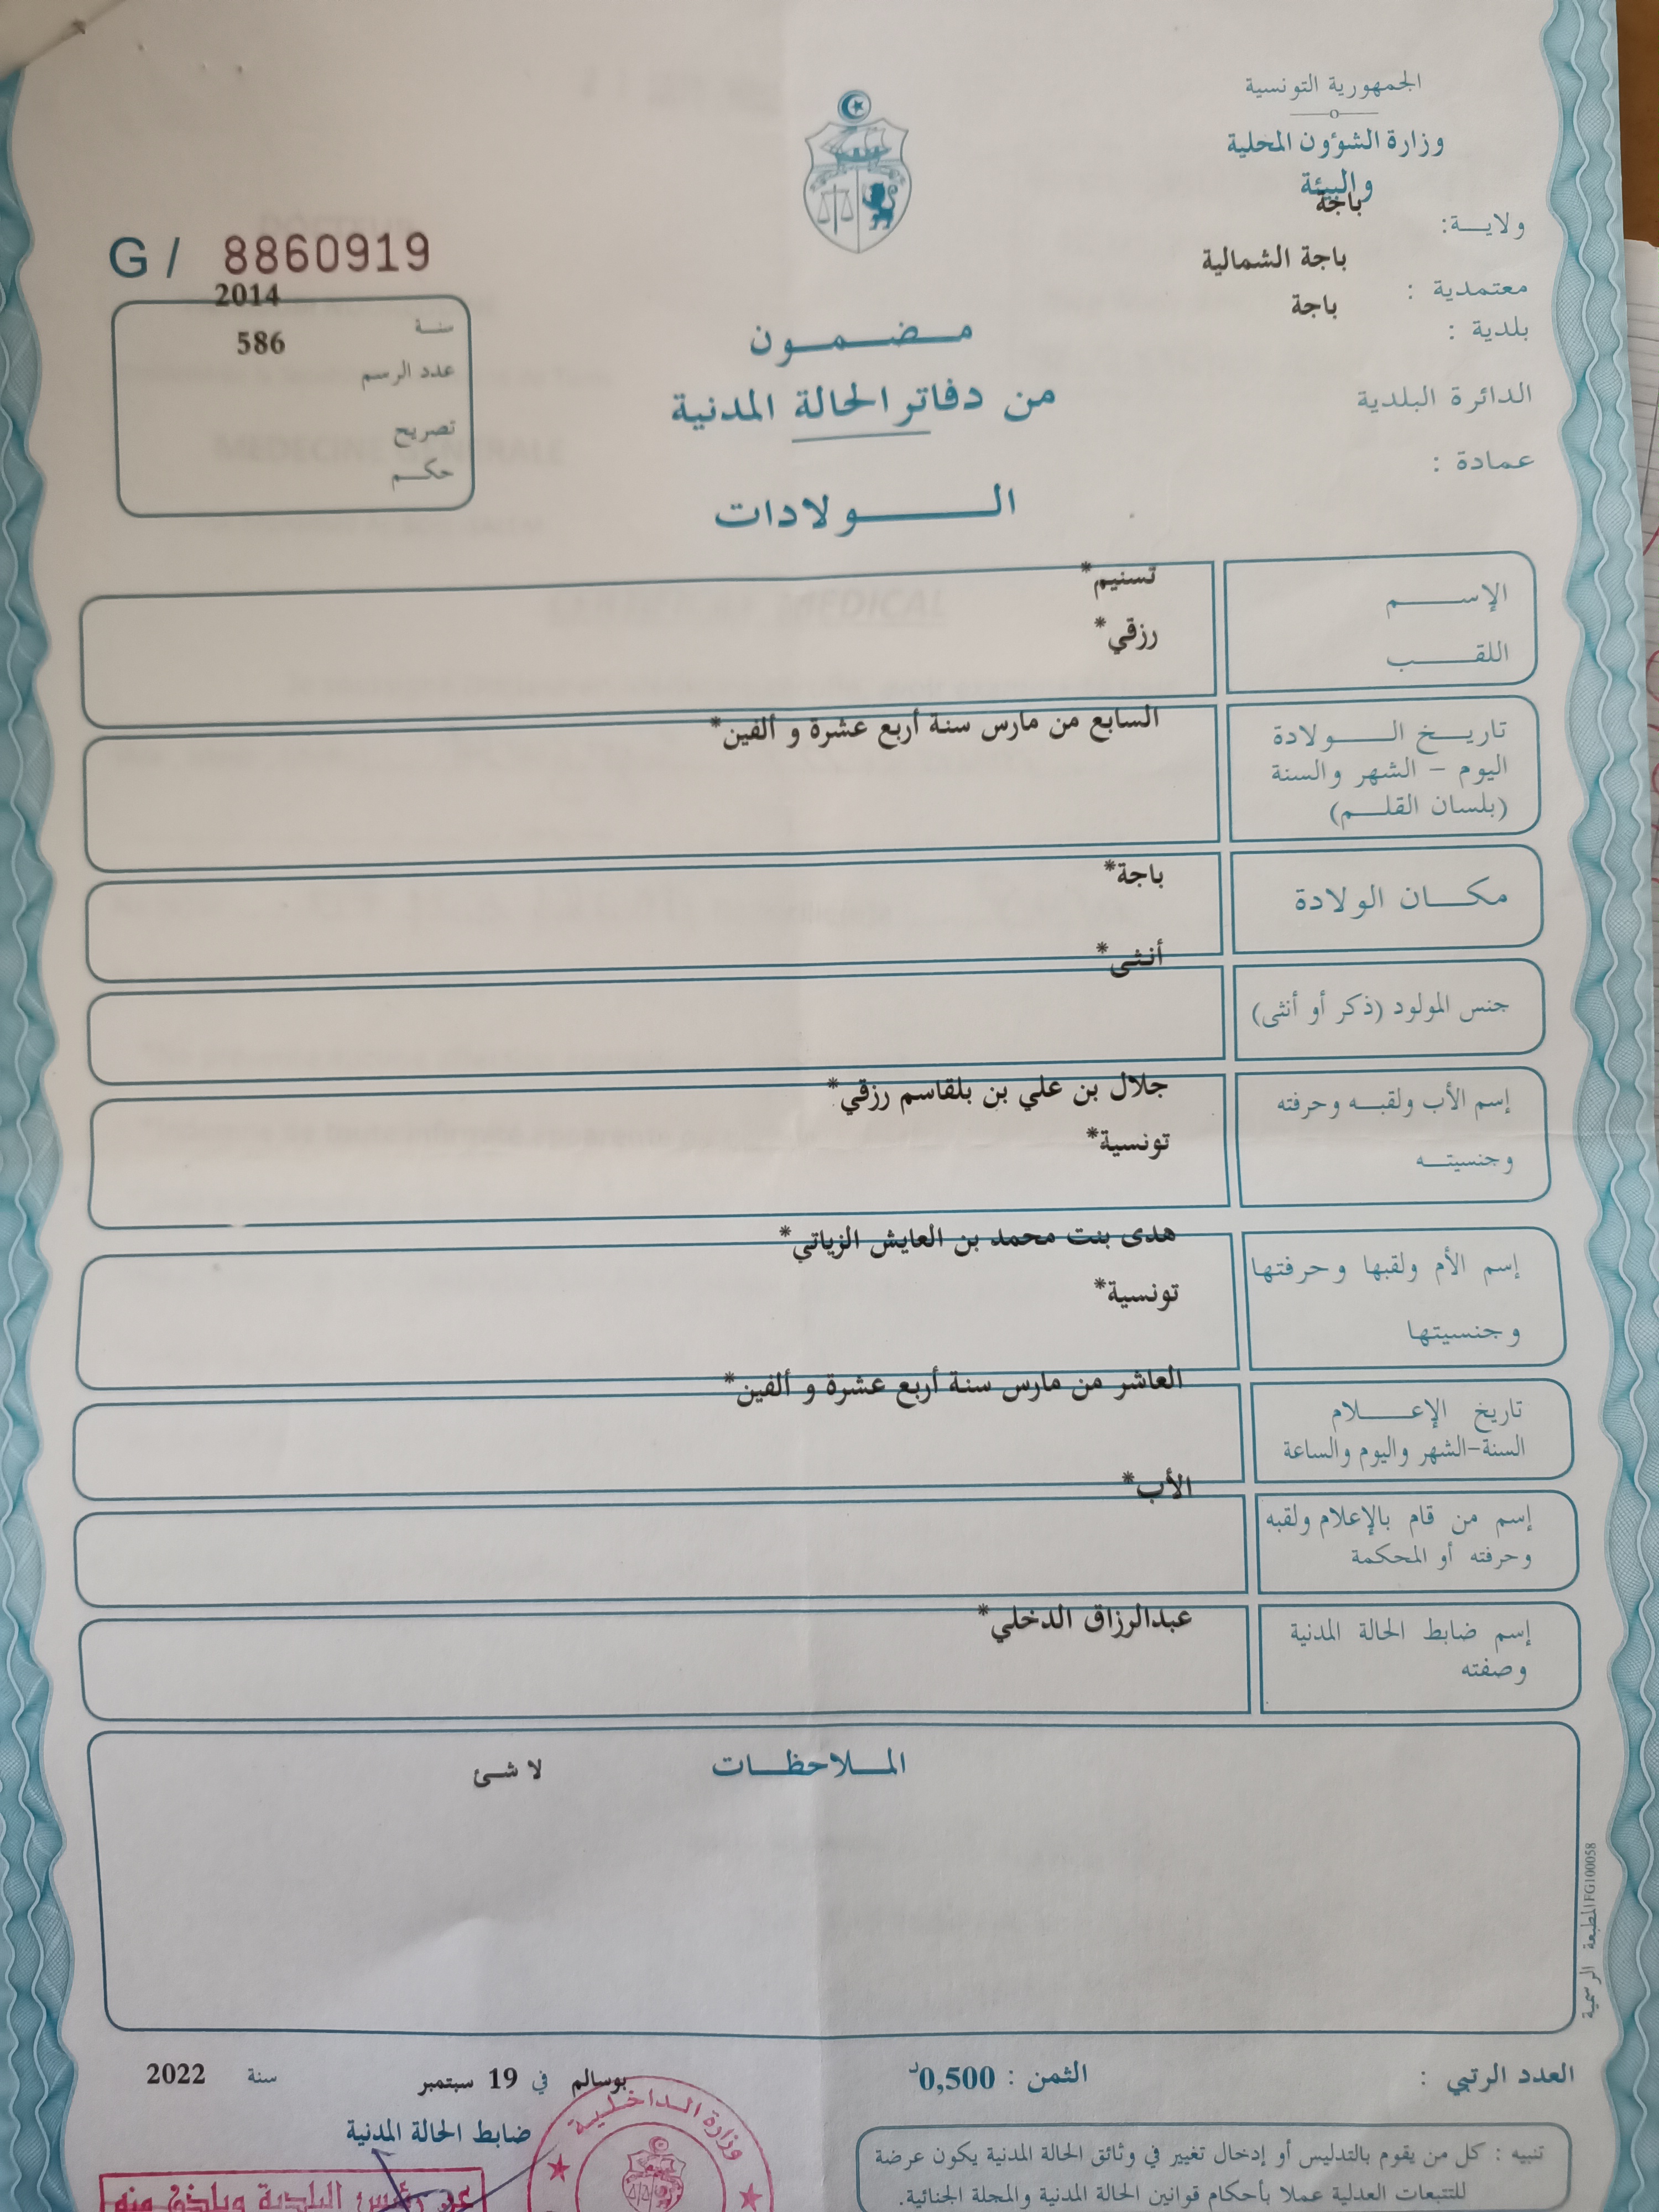 الجمهورية التونسية
وزارة الشؤون المحلية
والبيئة
ولاية: باجة
معتمدية : باجة الشمالية
بلدية : باجة
الدائرة البلدية
عمادة :
G / 8860919
سنة 2014
عدد الرسم 586
تصريح
حكم
مضمون
من دفاتر الحالة المدنية
الولادات
الإسم تسنيم*
اللقب رزقي*
تاريخ الولادة السابع من مارس سنة أربع عشرة و ألفين*
اليوم - الشهر والسنة
(بلسان القلم)
مكان الولادة باجة*
جنس المولود (ذكر أو أنثى) أنثى*
إسم الأب ولقبه وحرفته جلال بن علي بن بلقاسم رزقي*
وجنسيته تونسية*
إسم الأم ولقبها وحرفتها هدى بنت محمد بن العايش الزياتي*
وجنسيتها تونسية*
تاريخ الإعلام العاشر من مارس سنة أربع عشرة و ألفين*
السنة-الشهر واليوم والساعة
إسم من قام بالإعلام ولقبه الأب*
وحرفته أو المحكمة
إسم ضابط الحالة المدنية عبدالرزاق الدخلي*
وصفته
الملاحظات لا شئ
المطبعة الرسمية FG100058
العدد الرتبي :
الثمن : 0,500د
بوسالم في 19 سبتمبر سنة 2022
ضابط الحالة المدنية
وزارة الداخلية
عن رئيس البلدية وبإذن منه
تنبيه : كل من يقوم بالتدليس أو إدخال تغيير في وثائق الحالة المدنية يكون عرضة
للتتبعات العدلية عملا بأحكام قوانين الحالة المدنية والمجلة الجنائية.